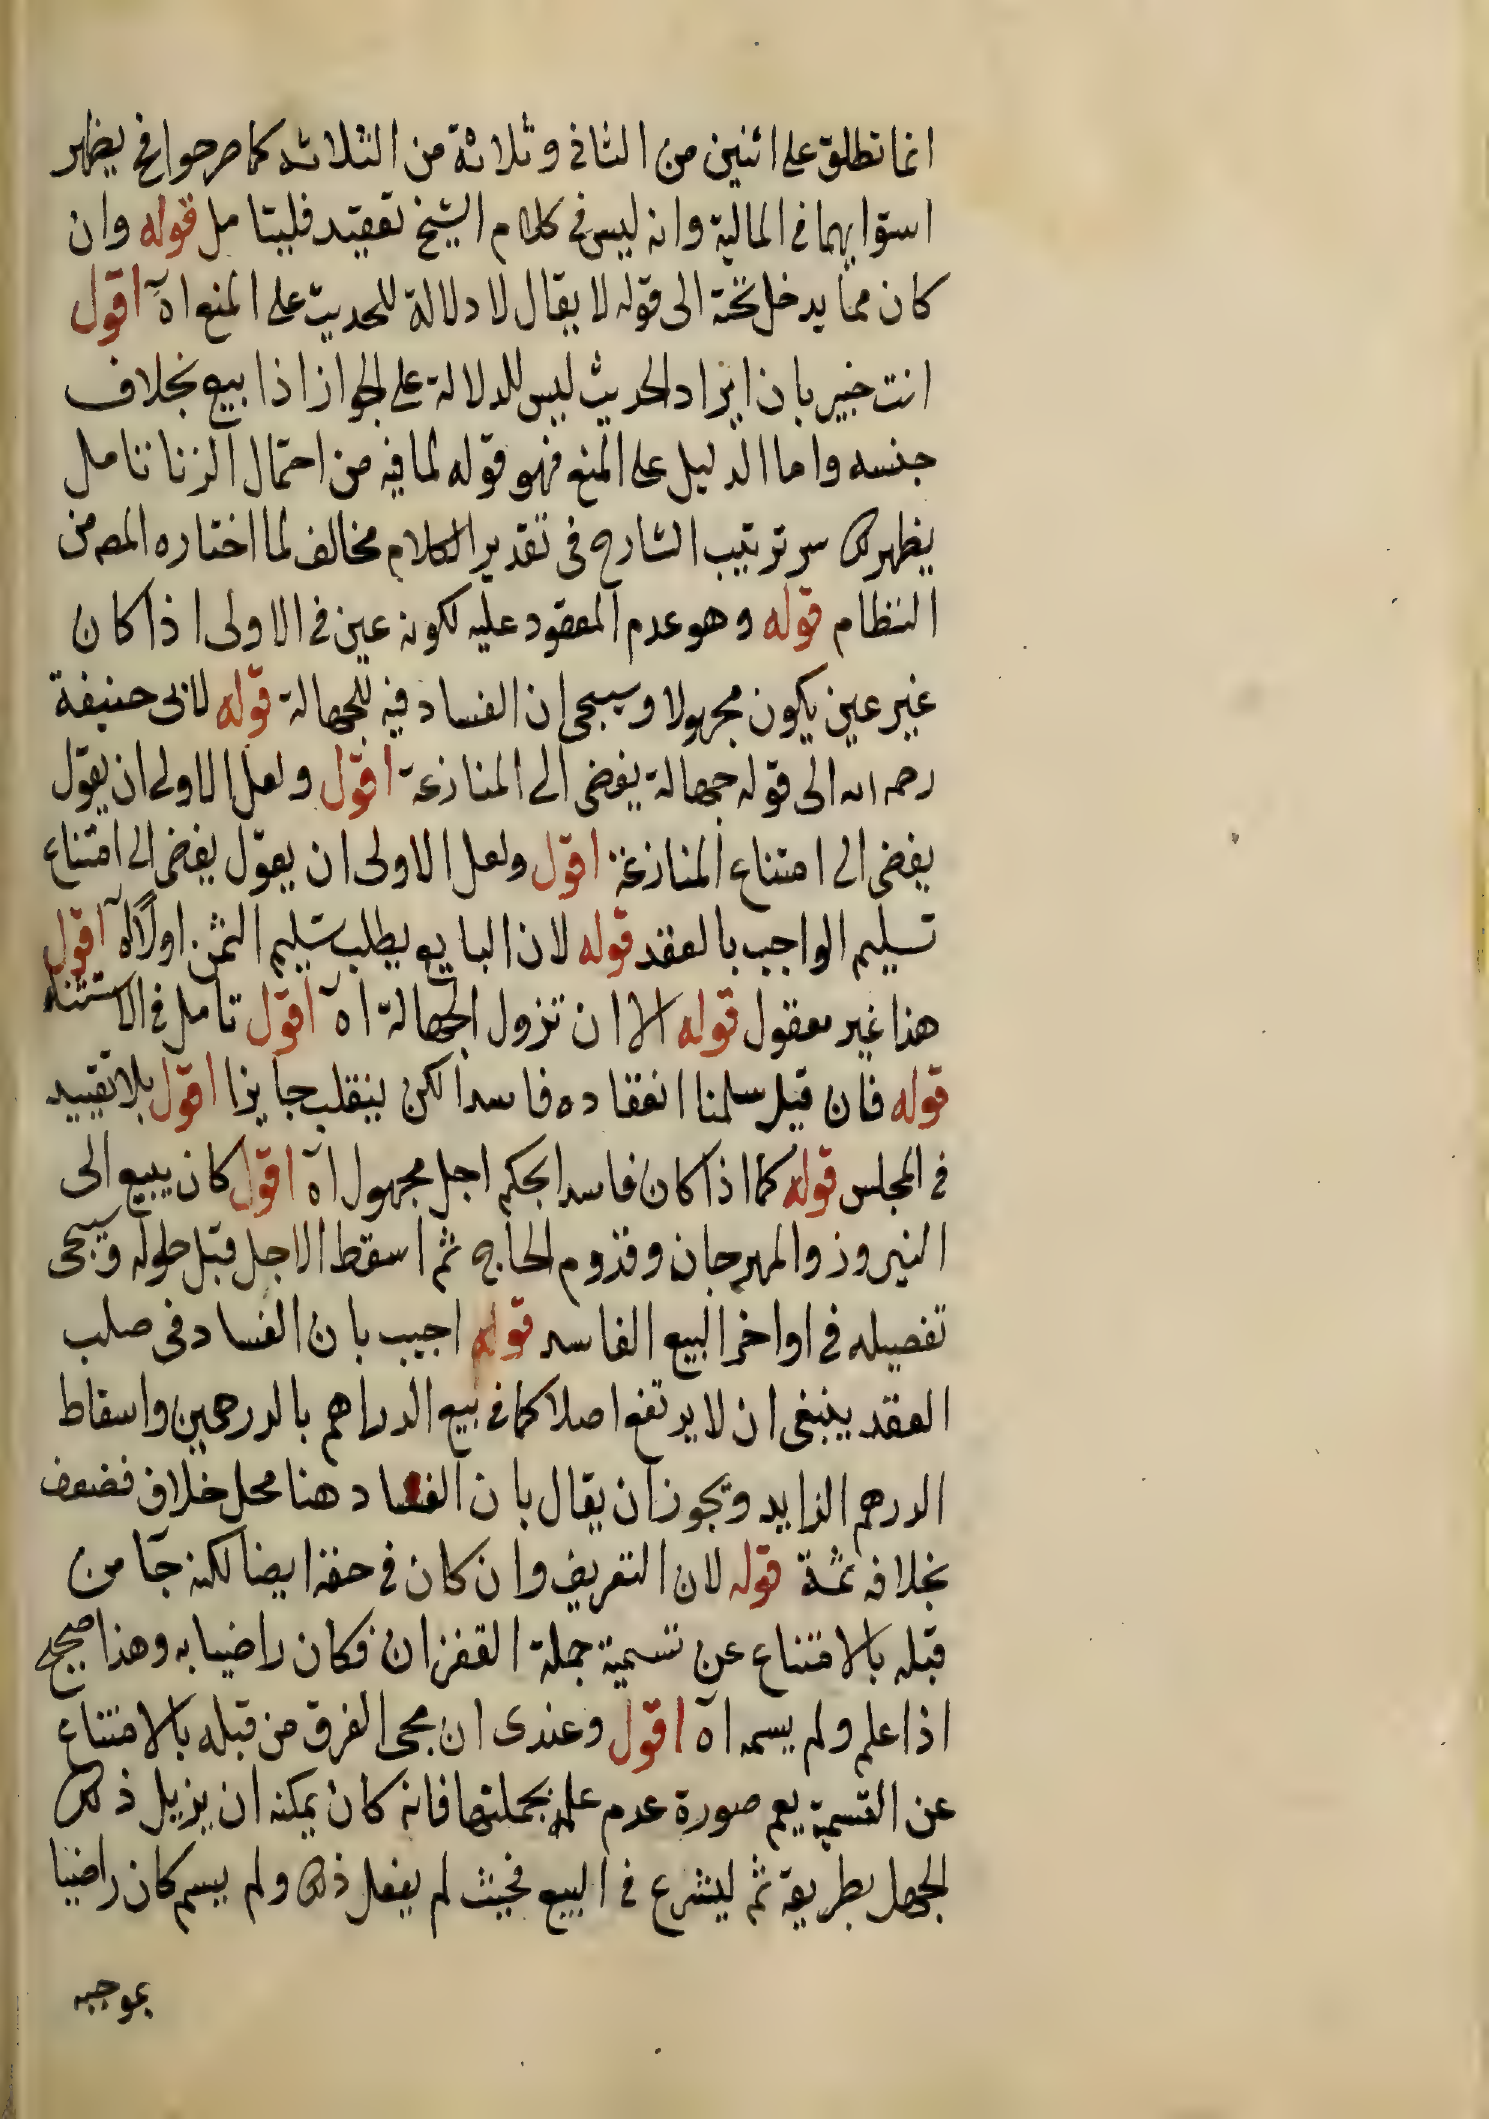 انما تطلق على اثنين من الثانى وثلاثة من الثلاث كما صرحوا فح يظهر
استوايهما فى المالية وانه ليس فى كلام الشيخ تعقيد فليتامل قوله وان
كان مما يدخل تحته الى قوله لا يقال لا دلالة للحديث على المنع اه اقول
انت خبير بان ايراد الحديث ليس للدلالة على الجواز اذا بيع بخلاف
جنسه واما الدليل على المنع فهو قوله لما فيه من احتمال الربا تامل
يظهر لك سر ترتيب الشارح فى تقدير الكلام مخالف لما اختاره المص من
النظام قوله وهو عدم المعقود عليه لكونه عين فى الاولى اذا كان
غير عين يكون مجهولا وسيجى ان الفساد فيه للجهالة قوله لابى حنيفة
رحمه الله الى قوله جهالة يفضى الى المنازعة اقول ولعل الاولى ان يقول
يفضى الى امتناع المنازعة اقول ولعل الاولى ان يقول يفضى الى امتناع
تسليم الواجب بالعقد قوله لان البايع يطلب تسليم الثمن اولًا اه اقول
هذا غير معقول قوله الا ان تزول الجهالة اه اقول تامل فى الاستثناء
قوله فان قيل سلمنا انعقاده فاسدا لكن ينقلب جايزا اقول بلا تقييد
فى المجلس قوله كما اذا كان فاسدا بحكم اجل مجهول اه اقول كان يبيع الى
النيروز والمهرجان وقدوم الحاج ثم اسقط الاجل قبل حلوله وسيجى
تفصيله فى اواخر البيع الفاسد قوله اجيب بان الفساد فى صلب
العقد ينبغى ان لا يرتفع اصلا كما فى بيع الدراهم بالدرهمين واسقاط
الدرهم الزايد ويجوز ان يقال بان الفساد هنا محل خلاف فضعف
بخلافه ثمة قوله لان التفريق وان كان فى حقه ايضا لكنه جآ من
قبله بالامتناع عن تسمية جملة القفزان فكان راضيا به وهذا صحيح
اذا علم ولم يسمه اه اقول وعندى ان مجى الفرق من قبله بالامتناع
عن التسمية يعم صورة عدم علمه بجملتها فانه كان يمكنه ان يزيل ذلك
الجهل بطريقة ثم ليشرع فى البيع فحيث لم يفعل ذلك ولم يسم كان راضيا
بموجبه